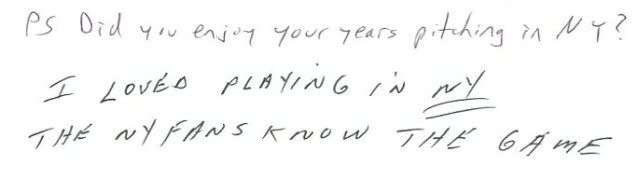 PS Did you enjoy your years pitching in NY?
I LOVED PLAYING IN NY
THE NY FANS KNOW THE GAME